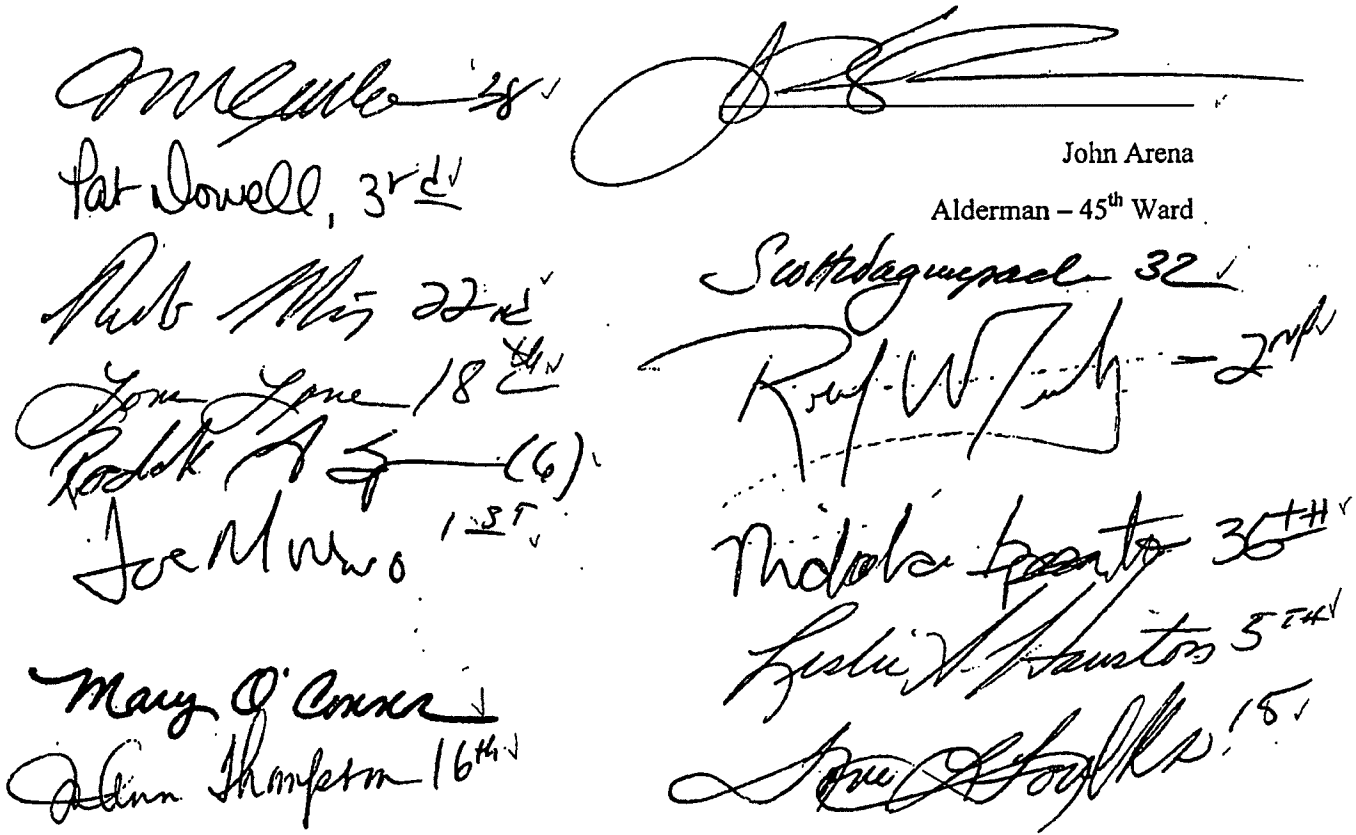 38
Pat Dowell, 3rd
22nd
Lona Lane 18th
(6)
Joe Moreno 1ST
Mary O'Connor
JoAnn Thompson 16th
John Arena
Alderman – 45th Ward
Scott Waguespack 32
W – 2nd
Nicholas Sposato 36TH
Leslie A. Hairston 5TH
Foulkes 15